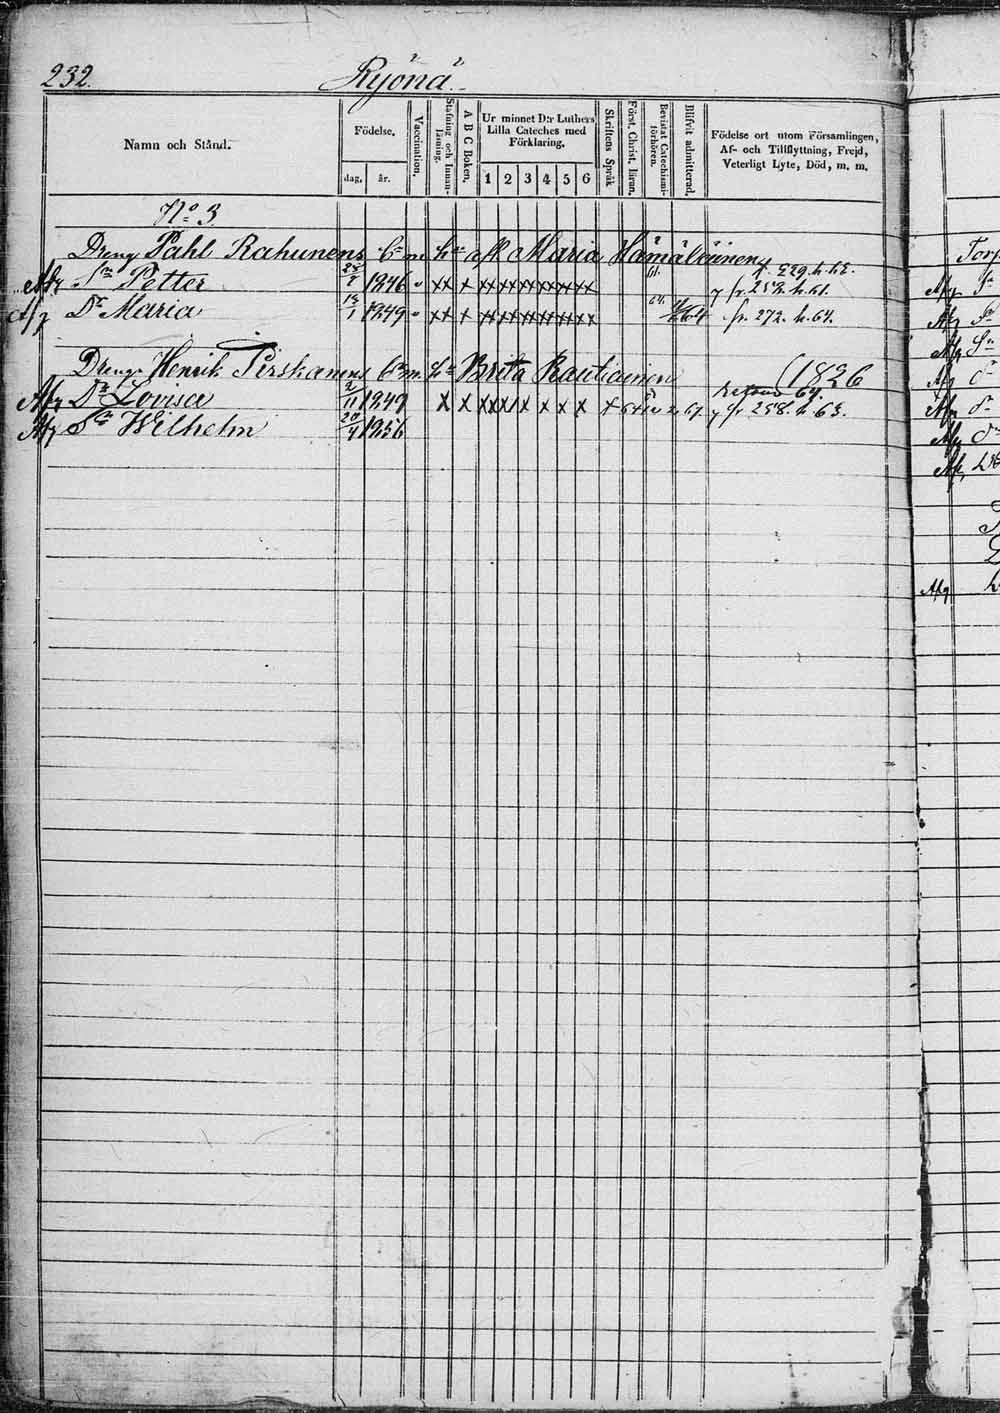 232. Ryönä.
Namn och Stånd.
Födelse.
dag. år.
Vaccination.
Stafning och Innanläsning.
A B C Boken.
Ur minnet D:r Luthers Lilla Cateches med Förklaring.
1 2 3 4 5 6
Skriftens Språk
Först. Christ. läran.
Bevistat Catechismiförhören.
Blifvit admitterad.
Födelse ort utom Församlingen,
Af- och Tillflyttning, Frejd,
Veterligt Lyte, Död, m. m.
No 3.
Dreng Pahl Rahunens b- m h- Maria Hämäläinen
Sn Petter 1846 x x x x x x x x x fr. 258. h. 61.
Dr Maria 1849 x x x x x x x x x fr. 272. h. 64.
Dreng Henrik Pirskanens h- Brita Rautiainen (1826
Afg Dr Lovisa 2/11 1849 x x x x x x x x x x fr 258. h. 63.
Afg Sn Wilhelm 20/4 1856
Afg
Afg
Afg
Afg
Afg
Afg